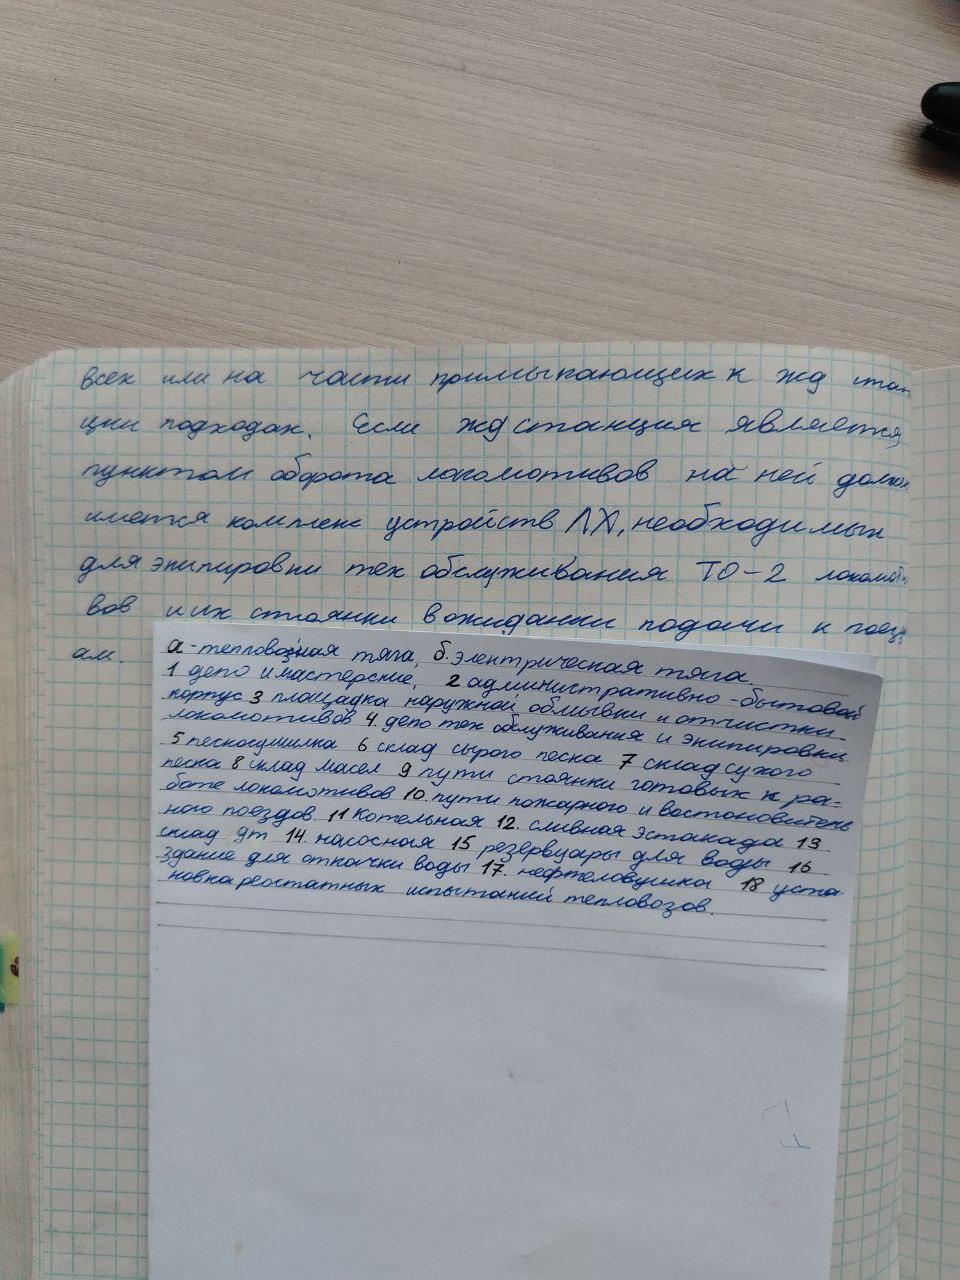 всех или на части примыкающих к жд стан
ции подходах. Если жд станция является
пунктом оборота локомотивов на ней должен
имется комплекс устройств ЛХ, необходимых
для экипировки тех обслуживания ТО-2 локомоти
вов и их стоянки в ожидании подачи к поезд
ам.
а - тепловозная тяга, б. электрическая тяга.
1 депо и мастерские, 2 административно - бытовой
корпус 3 площадка наружной обмывки и отчистки
локомотивов 4. депо тех обслуживания и экипировки
5 пескосушилка 6 склад сырого песка 7 склад сухого
песка 8 склад масел 9 пути стоянки готовых к ра-
боте локомотивов 10. пути пожарного и востоновитель
ного поездов. 11 котельная 12. сливная эстакада 13
склад дт 14. насосная 15 резервуары для воды 16
здание для откачки воды 17. нефтеловушка 18 уста
новка реостатных испытаний тепловозов.